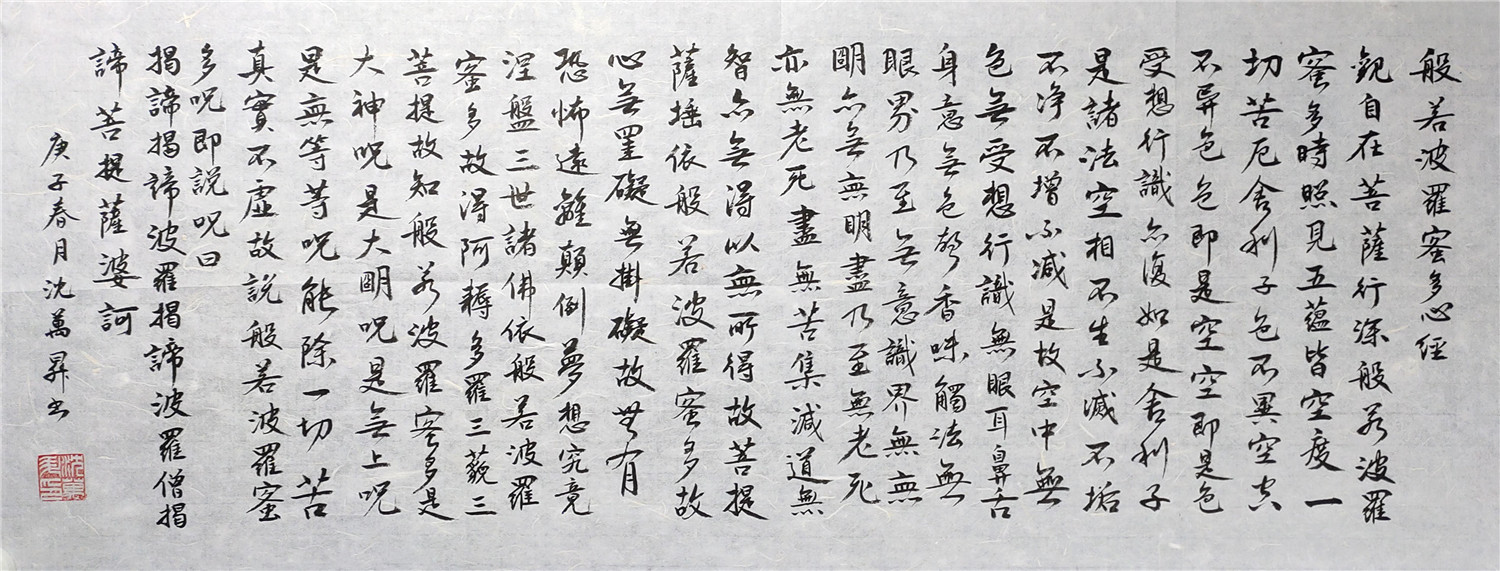 般若波羅蜜多心經
觀自在菩薩行深般若波羅
蜜多時照見五蘊皆空度一
切苦厄舍利子色不異空空
不異色色即是空空即是色
受想行識亦復如是舍利子
是諸法空相不生不滅不垢
不净不增不减是故空中無
色無受想行識無眼耳鼻舌
身意無色聲香味觸法無
眼界乃至無意識界無無
明亦無無明盡乃至無老死
亦無老死盡無苦集滅道無
智亦無得以無所得故菩提
薩埵依般若波羅蜜多故
心無罣礙無掛礙故無有
恐怖遠離顛倒夢想究竟
涅盤三世諸佛依般若波羅
蜜多故得阿耨多羅三藐三
菩提故知般若波羅蜜多是
大神呪是大明呪是無上呪
是無等等呪能除一切苦
真實不虛故説般若波羅蜜
多呪即説呪曰
揭諦揭諦波羅揭諦波羅僧揭
諦菩提薩婆訶
庚子春月沈萬昇書